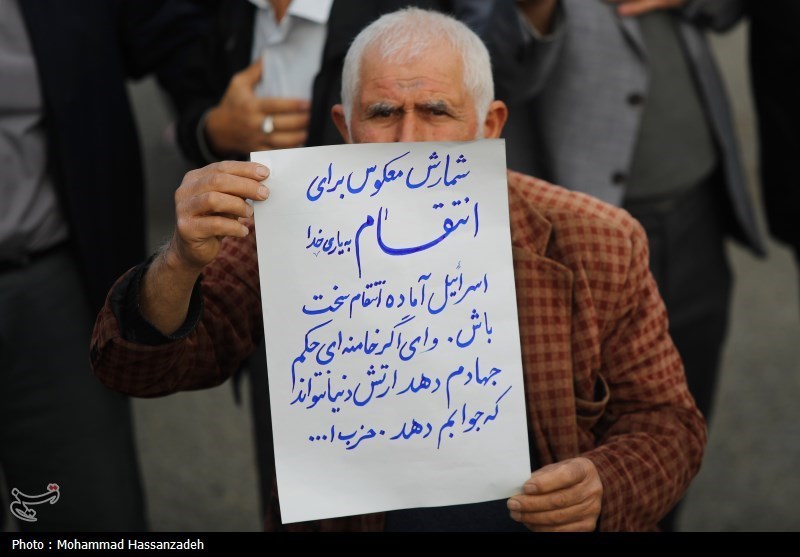 شمارش معکوس برای
انتقام به یاری خدا
اسرائیل آماده انتقام سخت
باش. وای اگر خامنه ای حکم
جهادم دهد ارتش دنیا نتواند
که جوابم دهد. حزب ا...
تسنیم
Photo : Mohammad Hassanzadeh